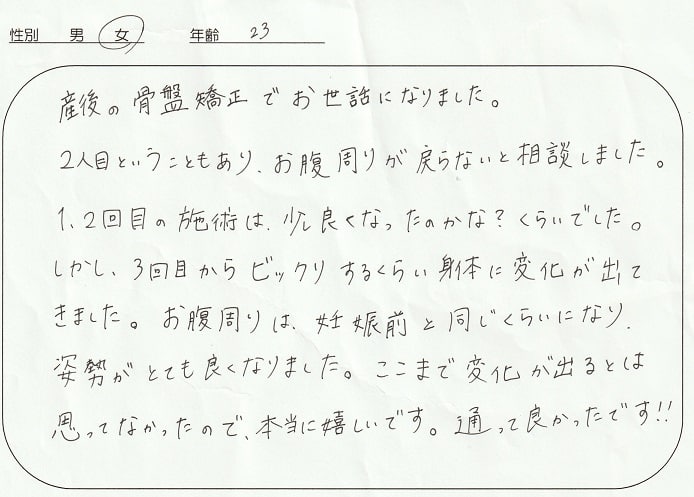 性別 男 女 年齢 23
産後の骨盤矯正でお世話になりました。
2人目ということもあり、お腹周りが戻らないと相談しました。
1、2回目の施術は、少し良くなったのかな？くらいでした。
しかし、3回目からビックリするくらい身体に変化が出て
きました。お腹周りは、妊娠前と同じくらいになり、
姿勢がとても良くなりました。ここまで変化が出るとは
思ってなかったので、本当に嬉しいです。通って良かったです!!